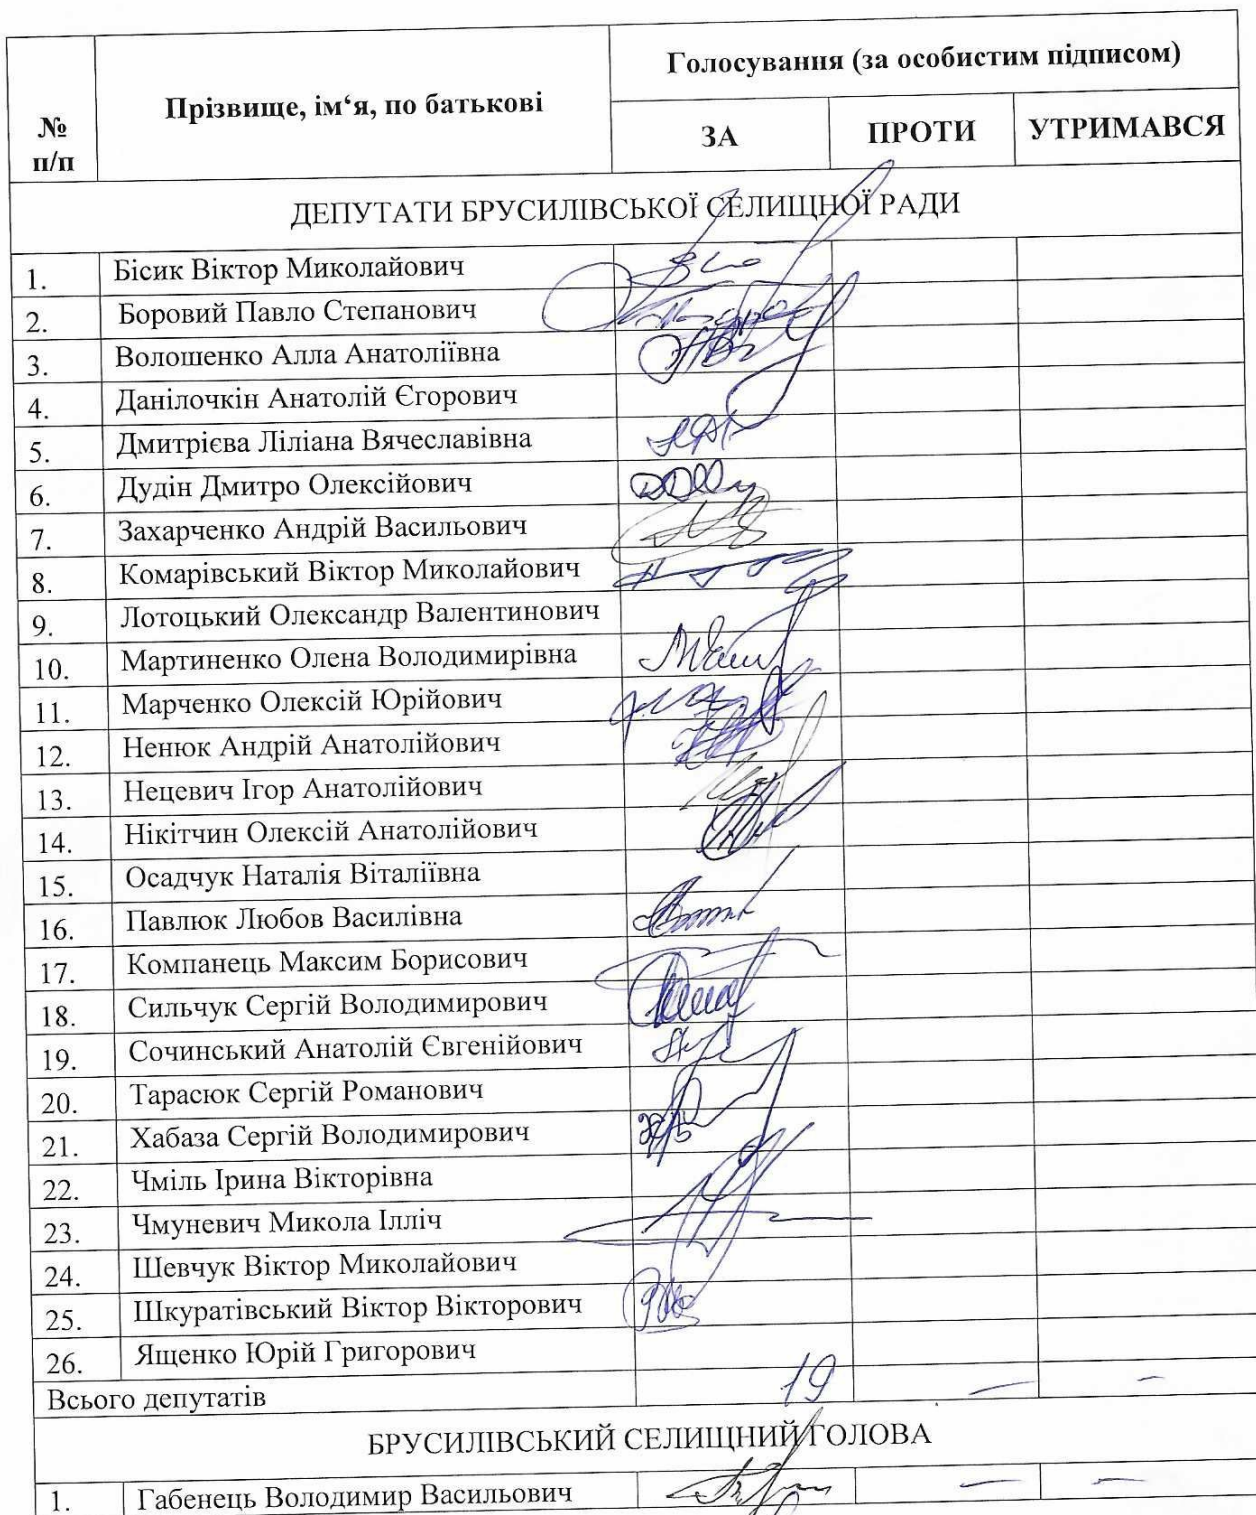 № п/п Прізвище, ім‘я, по батькові Голосування (за особистим підписом)
ЗА ПРОТИ УТРИМАВСЯ
ДЕПУТАТИ БРУСИЛІВСЬКОЇ СЕЛИЩНОЇ РАДИ
1. Бісик Віктор Миколайович
2. Боровий Павло Степанович
3. Волошенко Алла Анатоліївна
4. Данілочкін Анатолій Єгорович
5. Дмитрієва Ліліана Вячеславівна
6. Дудін Дмитро Олексійович
7. Захарченко Андрій Васильович
8. Комарівський Віктор Миколайович
9. Лотоцький Олександр Валентинович
10. Мартиненко Олена Володимирівна
11. Марченко Олексій Юрійович
12. Ненюк Андрій Анатолійович
13. Нецевич Ігор Анатолійович
14. Нікітчин Олексій Анатолійович
15. Осадчук Наталія Віталіївна
16. Павлюк Любов Василівна
17. Компанець Максим Борисович
18. Сильчук Сергій Володимирович
19. Сочинський Анатолій Євгенійович
20. Тарасюк Сергій Романович
21. Хабаза Сергій Володимирович
22. Чміль Ірина Вікторівна
23. Чмуневич Микола Ілліч
24. Шевчук Віктор Миколайович
25. Шкуратівський Віктор Вікторович
26. Ященко Юрій Григорович
Всього депутатів 19 – –
БРУСИЛІВСЬКИЙ СЕЛИЩНИЙ ГОЛОВА
1. Габенець Володимир Васильович – –